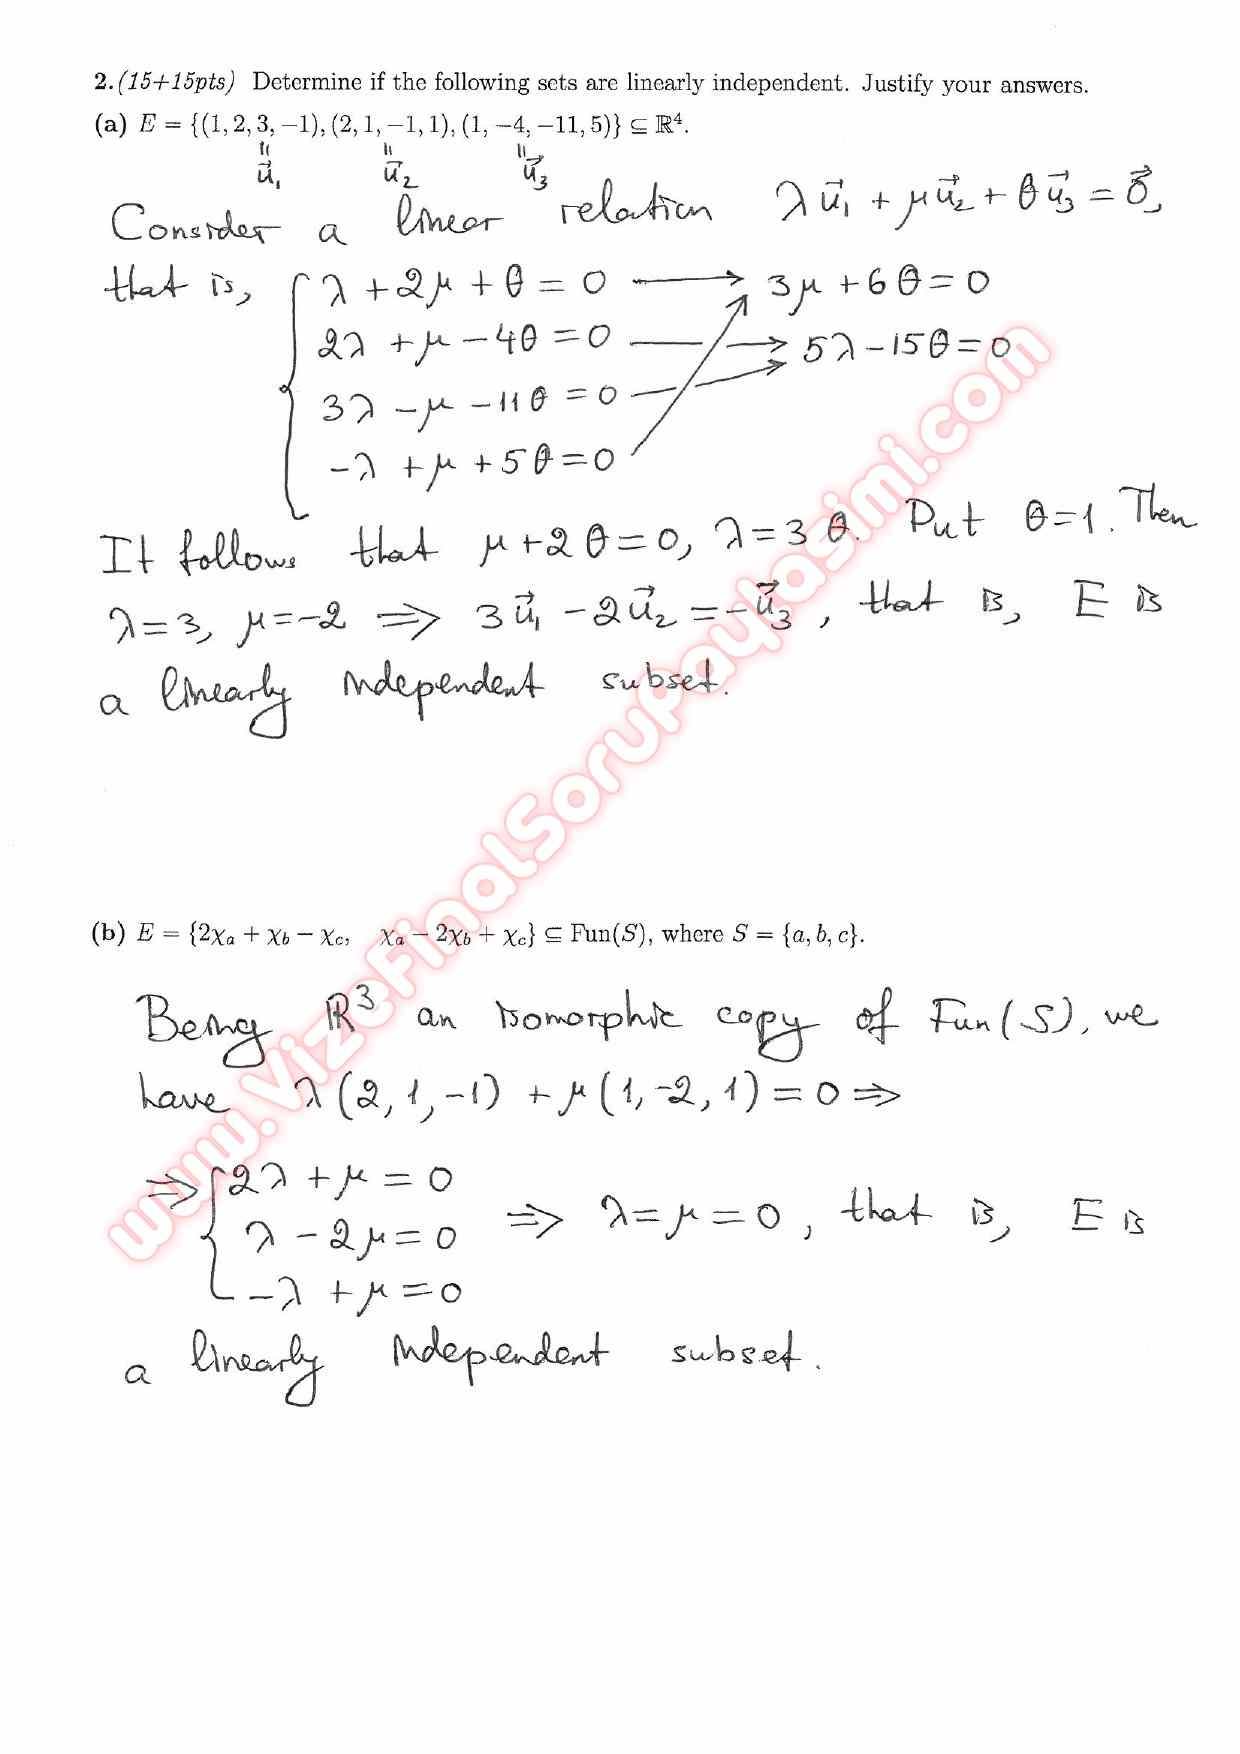 2.(15+15pts) Determine if the following sets are linearly independent. Justify your answers.
(a) E = {(1, 2, 3, −1), (2, 1, −1, 1), (1, −4, −11, 5)} ⊆ ℝ⁴.
u⃗₁ u⃗₂ u⃗₃
Consider a linear relation λu⃗₁ + μu⃗₂ + θu⃗₃ = 0⃗,
that is, { λ + 2μ + θ = 0 → 3μ + 6θ = 0
2λ + μ − 4θ = 0 → 5λ − 15θ = 0
3λ − μ − 11θ = 0
−λ + μ + 5θ = 0
It follows that μ + 2θ = 0, λ = 3θ. Put θ = 1. Then
λ = 3, μ = −2 ⇒ 3u⃗₁ − 2u⃗₂ = −u⃗₃, that is, E is
a linearly independent subset.
(b) E = {2χₐ + χ_b − χ_c, χₐ − 2χ_b + χ_c} ⊆ Fun(S), where S = {a, b, c}.
Being ℝ³ an isomorphic copy of Fun(S), we
have λ(2, 1, −1) + μ(1, −2, 1) = 0 ⇒
⇒ { 2λ + μ = 0
λ − 2μ = 0 ⇒ λ = μ = 0, that is, E is
−λ + μ = 0
a linearly independent subset.
www.VizeFinalSoruPaylasimi.com